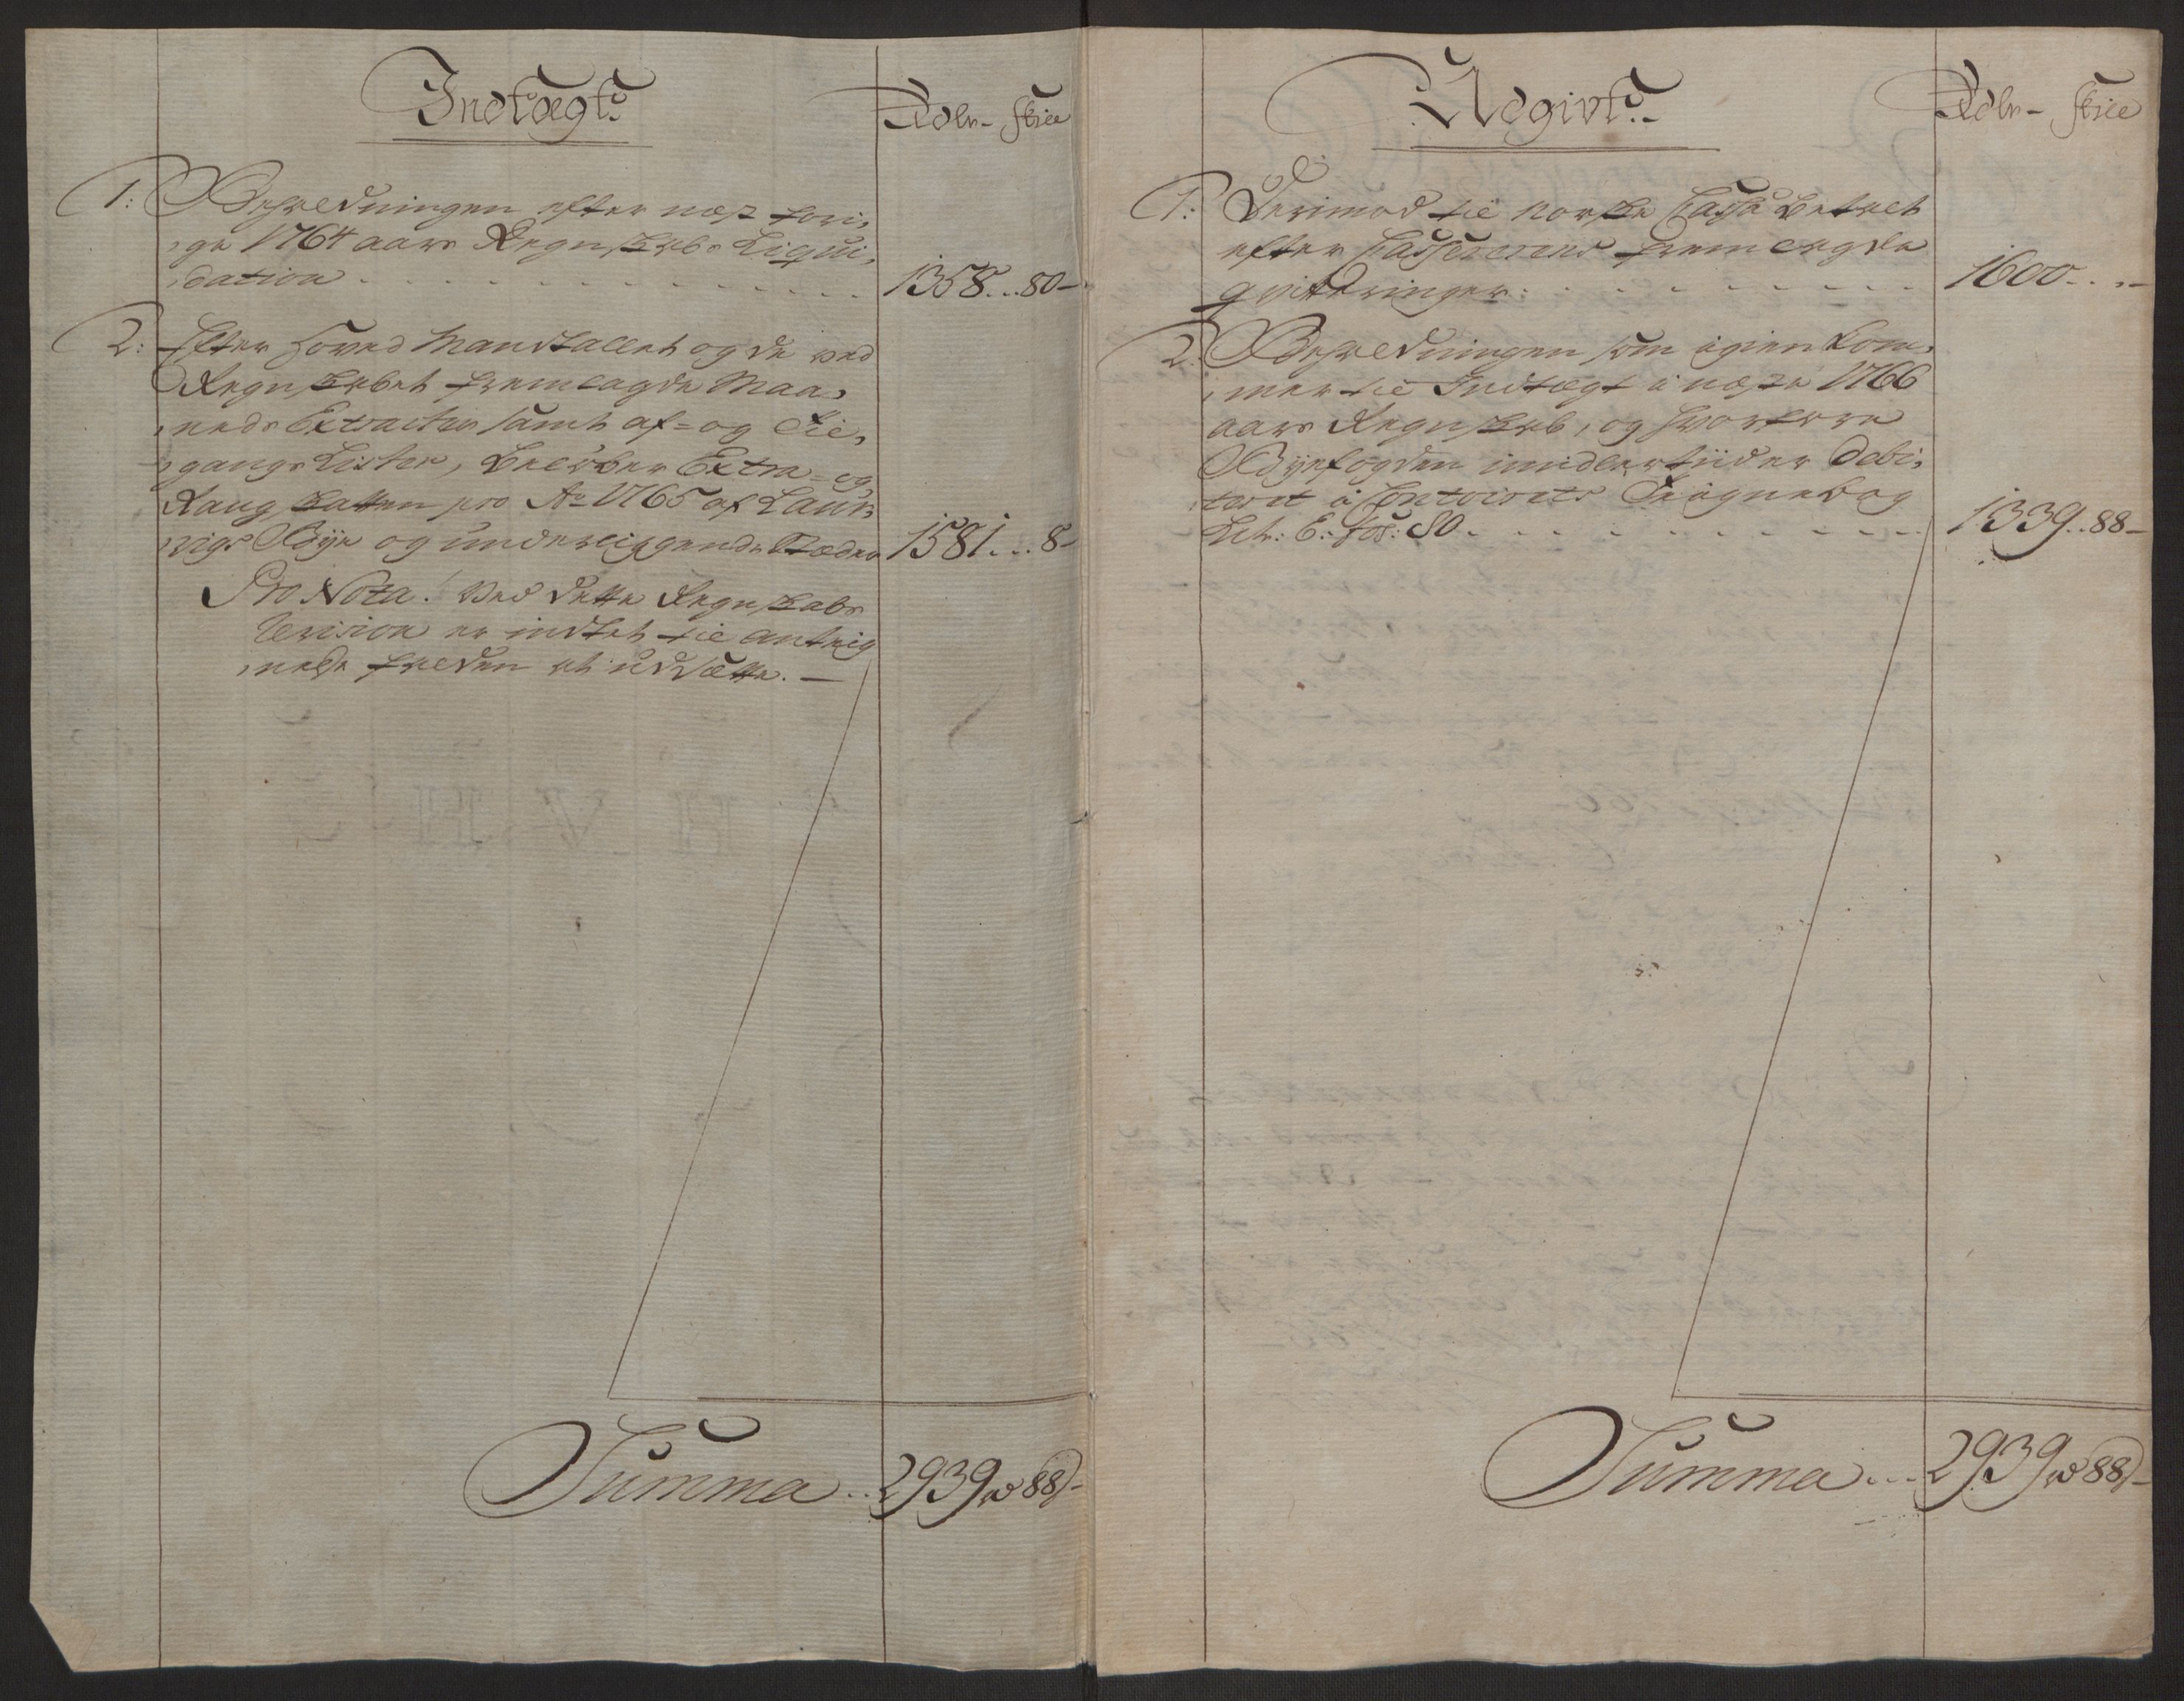 Indtægt
Rdlr - skill
1: Beholdningen efter næst fori-
ge 1764 aars Regnskabs Liqui-
dation . . . 1358...80-
2: Efter Hoved Mandtallet og de ved
Regnskabet fremlagde Maa-
neds Extracter samt af= og Til-
gangs Lister, beløber Extra= og
Rang Skatten pro Ao 1765 af Laur-
vigs Bÿe og underliggende Stæder 1581...8-
Pro Nota! Ved dette Regnskabs
Revision er indtet til anteig-
nelse funden at udsætte. -
Summa .. 2939 rd 88 s-
Udgivt
Rdlr - skill
1: Derimod til Norske Cassa betalt
efter Casserens fremlagde
qvitteringer . . . 1600.. ..-
2: Beholdningen som igien kom-
mer til Indtægt i næste 1766
aars Regnskab, og hvorfore
Bÿefogden imidlertiid er debi-
teret i Contoirets Skÿldnebog
Litr: E: fol: 80 . . . 1339..88-
Summa ... 2939 rd 88 s-